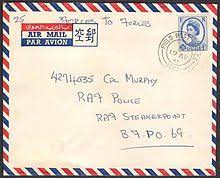 25 FORCES TO FORCES
بالبريد الجوي
AIR MAIL
PAR AVION
空郵
4274035 CPL MURPHY
RAF POLICE
RAF STEAMERPOINT
B.F.P.O. 69